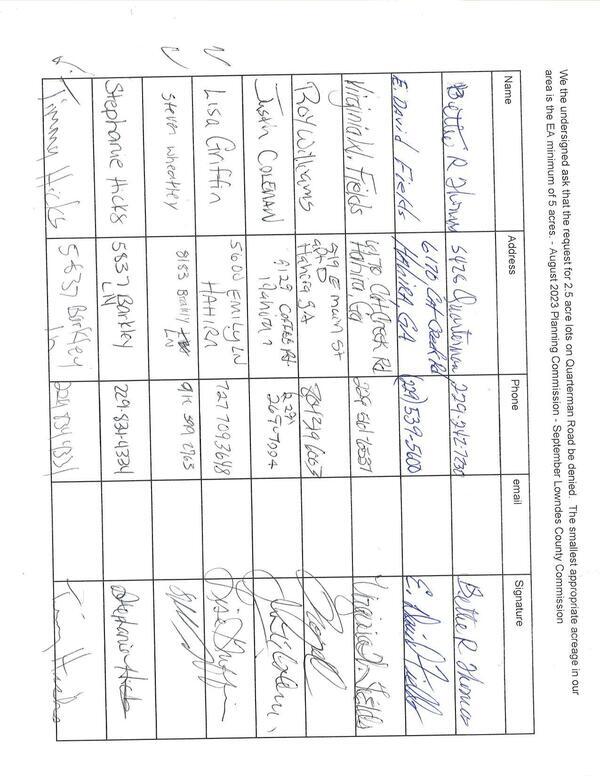 We the undersigned ask that the request for 2.5 acre lots on Quarterman Road be denied. The smallest appropriate acreage in our
area is the EA minimum of 5 acres. - August 2023 Planning Commission - September Lowndes County Commission
Name Address Phone email Signature
Bettie R Thomas 5426 Quarterman 229-242-7230 Bettie R Thomas
E. David Fields 6170 Cat Creek Rd Hahira GA (229) 539-5600 E. David Fields
Virginia W. Fields 6170 Cat Creek Rd Hahira Ga 229 561-
Roy Williams 519 E main St Hahira GA
Justin COLEMAN
Lisa Griffin 5600 EMILY LN HAHIRA 7277093648
Steven Wheatley LN 912 399 2963
Stephanie Hicks 5837 Barkley LN 229-834-4334 Stephanie Hicks
Timmy Hicks 5837 Barkley Timmy Hicks